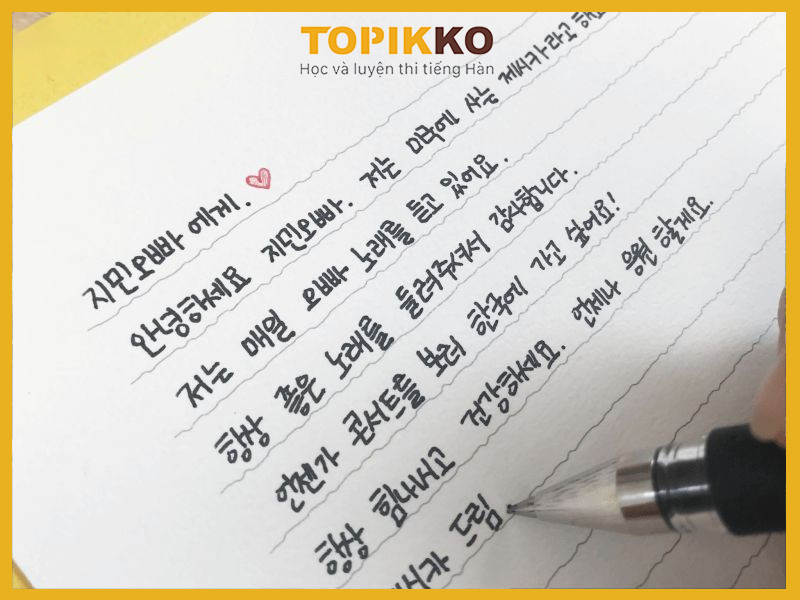 TOPIKKO
Học và luyện thi tiếng Hàn
지민오빠 에게. ♥
안녕하세요 지민오빠. 저는 미국에 사는 제시카라고
저는 매일 오빠 노래를 듣고 있어요.
항상 좋은 노래를 들려주셔서 감사합니다.
언젠가 콘서트를 보러 한국에 가고 싶어요!
항상 힘내시고 건강하세요. 언제나 응원 할게요.
시카 드림